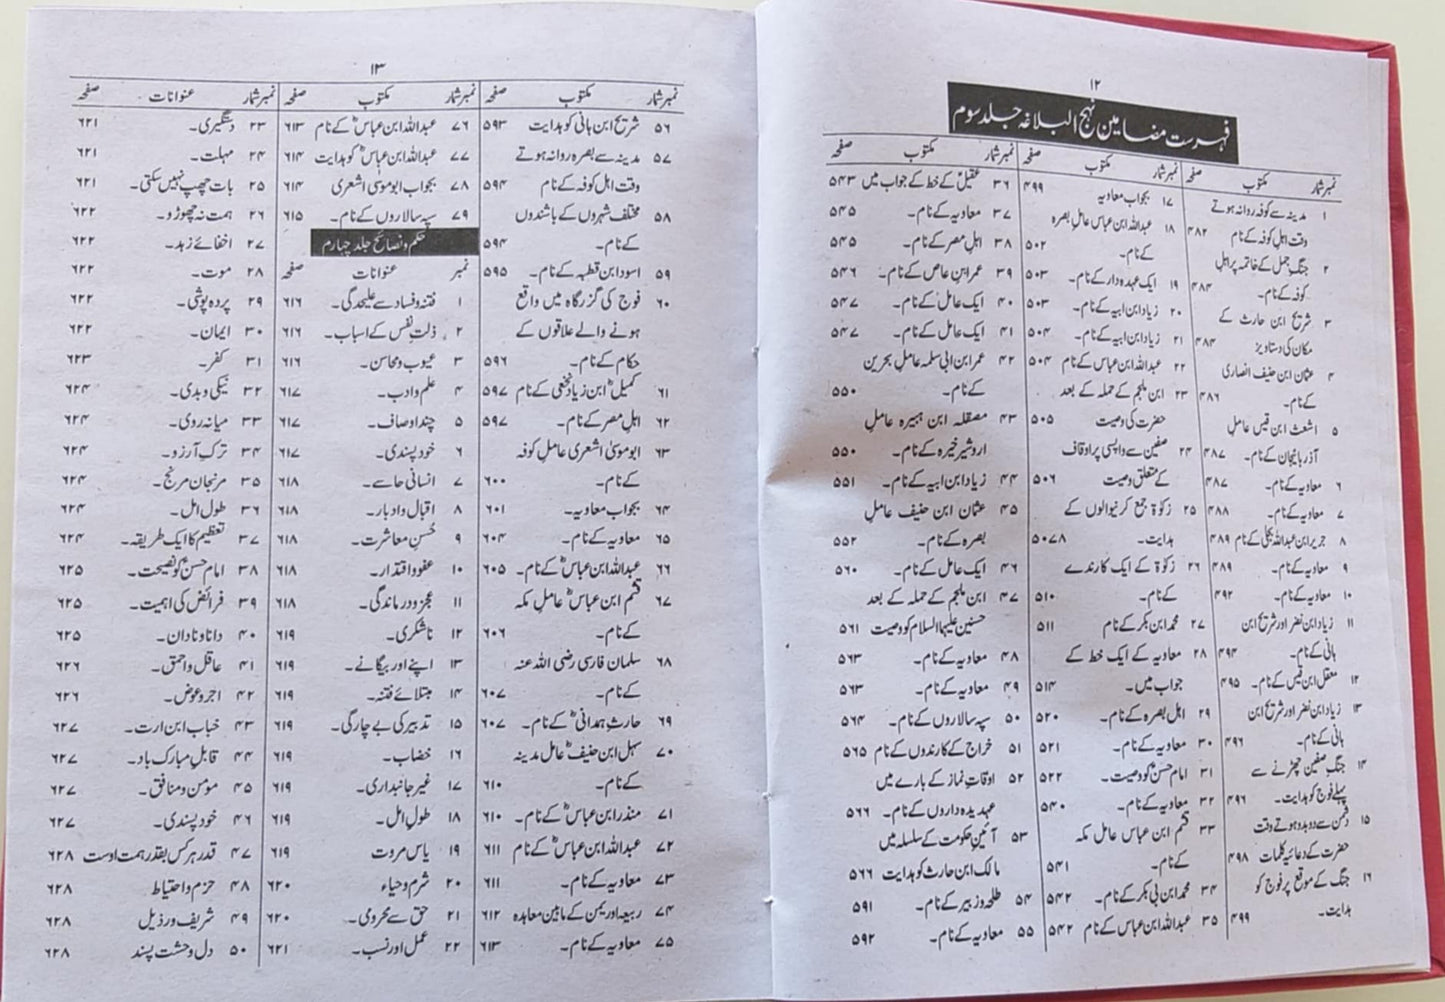 ۱۲
فہرست مضامین نہج البلاغہ جلد سوم
نمبر شمار مکتوب صفحہ
۱ مدینہ سے کوفہ روانہ ہوتے
وقت اہل کوفہ کے نام ۴۸۲
۲ جنگِ جمل کے خاتمہ پر اہلِ
کوفہ کے نام۔ ۴۸۴
۳ شریح ابن حارث کے
مکان کی دستاویز ۴۸۴
۴ عثمان ابن حنیف انصاری
کے نام۔ ۴۸۶
۵ اشعث ابن قیس عاملِ
آذربائیجان کے نام۔ ۴۸۷
۶ معاویہ کے نام۔ ۴۸۷
۷ معاویہ کے نام۔ ۴۸۸
۸ جریر ابن عبداللہ بجلی کے نام ۴۸۹
۹ معاویہ کے نام۔ ۴۸۹
۱۰ معاویہ کے نام۔ ۴۹۲
۱۱ زیاد ابن نضر اور شریح ابن
ہانی کے نام۔ ۴۹۴
۱۲ معقل ابن قیس کے نام۔ ۴۹۵
۱۳ زیاد ابن نضر اور شریح ابن
ہانی کے نام۔ ۴۹۶
۱۴ جنگِ صفین چھڑنے سے
پہلے فوج کو ہدایت۔ ۴۹۶
۱۵ دشمن سے دوبدو ہوتے وقت
حضرت کے دعائیہ کلمات ۴۹۸
۱۶ جنگ کے موقع پر فوج کو
ہدایت۔ ۴۹۹
نمبر شمار مکتوب صفحہ
۱۷ بجواب معاویہ ۴۹۹
۱۸ عبداللہ ابن عباس عاملِ بصرہ
کے نام۔ ۵۰۲
۱۹ ایک عہدہ دار کے نام۔ ۵۰۳
۲۰ زیاد ابن ابیہ کے نام۔ ۵۰۳
۲۱ زیاد ابن ابیہ کے نام۔ ۵۰۴
۲۲ عبداللہ ابن عباس کے نام ۵۰۴
۲۳ ابن ملجم کے حملہ کے بعد
حضرت کی وصیت ۵۰۵
۲۴ صفین سے واپسی پر اوقاف
کے متعلق وصیت ۵۰۶
۲۵ زکوٰۃ جمع کرنیوالوں کے
ہدایت۔ ۵۰۷۸
۲۶ زکوٰۃ کے ایک کارندے
کے نام۔ ۵۱۰
۲۷ محمد ابن بکر کے نام ۵۱۱
۲۸ معاویہ کے ایک خط کے
جواب میں۔ ۵۱۴
۲۹ اہل بصرہ کے نام۔ ۵۲۰
۳۰ معاویہ کے نام۔ ۵۲۱
۳۱ امام حسنؑ کو وصیت۔ ۵۲۲
۳۲ معاویہ کے نام۔ ۵۴۰
۳۳ قثم ابن عباس عاملِ مکہ
کے نام۔ ۵۴۱
۳۴ محمد ابن ابی بکر کے نام۔ ۵۴۲
۳۵ عبداللہ ابن عباس کے نام ۵۴۲
نمبر شمار مکتوب صفحہ
۳۶ عقیلؑ کے خط کے جواب میں ۵۴۳
۳۷ معاویہ کے نام۔ ۵۴۵
۳۸ اہلِ مصر کے نام۔ ۵۴۵
۳۹ عمر ابن عاص کے نام۔ ۵۴۶
۴۰ ایک عامل کے نام۔ ۵۴۷
۴۱ ایک عامل کے نام۔ ۵۴۷
۴۲ عمر ابن ابی سلمہ عاملِ بحرین
کے نام۔ ۵۵۰
۴۳ مصقلہ ابن ہبیرہ عاملِ
اردشیر خیرہ کے نام۔ ۵۵۰
۴۴ زیاد ابن ابیہ کے نام۔ ۵۵۱
۴۵ عثمان ابن حنیف عاملِ
بصرہ کے نام۔ ۵۵۲
۴۶ ایک عامل کے نام۔ ۵۶۰
۴۷ ابن ملجم کے حملہ کے بعد
حسنین علیہما السلام کو وصیت ۵۶۱
۴۸ معاویہ کے نام۔ ۵۶۳
۴۹ معاویہ کے نام۔ ۵۶۳
۵۰ سپہ سالاروں کے نام۔ ۵۶۴
۵۱ خراج کے کارندوں کے نام ۵۶۵
۵۲ اوقاتِ نماز کے بارے میں
عہدیدہ داروں کے نام۔ ۵۶۶
۵۳ آئینِ حکومت کے سلسلہ میں
مالک ابن حارث کو ہدایت ۵۶۶
۵۴ طلحہ و زبیر کے نام۔ ۵۹۱
۵۵ معاویہ کے نام۔ ۵۹۲
۱۳
نمبر شمار مکتوب صفحہ
۵۶ شریح ابن ہانی کو ہدایت ۵۹۳
۵۷ مدینہ سے بصرہ روانہ ہوتے
وقت اہل کوفہ کے نام ۵۹۴
۵۸ مختلف شہروں کے باشندوں
کے نام۔ ۵۹۴
۵۹ اسود ابن قطبہ کے نام۔ ۵۹۵
۶۰ فوج کی گزرگاہ میں واقع
ہونے والے علاقوں کے
حکام کے نام۔ ۵۹۶
۶۱ کمیلؓ ابن زیاد نخعی کے نام ۵۹۷
۶۲ اہلِ مصر کے نام۔ ۵۹۷
۶۳ ابو موسیٰ اشعری عاملِ کوفہ
کے نام۔ ۶۰۰
۶۴ بجواب معاویہ۔ ۶۰۱
۶۵ معاویہ کے نام۔ ۶۰۴
۶۶ عبداللہ ابن عباسؓ کے نام۔ ۶۰۵
۶۷ قثم ابن عباسؓ عاملِ مکہ
کے نام۔ ۶۰۶
۶۸ سلمان فارسی رضی اللہ عنہ
کے نام۔ ۶۰۷
۶۹ حارث ہمدانیؓ کے نام۔ ۶۰۷
۷۰ سہل ابن حنیفؓ عامل مدینہ
کے نام۔ ۶۱۰
۷۱ منذر ابن عباسؓ کے نام۔ ۶۱۰
۷۲ عبداللہ ابن عباسؓ کے نام ۶۱۱
۷۳ معاویہ کے نام۔ ۶۱۱
۷۴ ربیعہ اور یمن کے مابین معاہدہ ۶۱۲
۷۵ معاویہ کے نام۔ ۶۱۳
نمبر شمار مکتوب صفحہ
۷۶ عبداللہ ابن عباسؓ کے نام ۶۱۳
۷۷ عبداللہ ابن عباسؓ کو ہدایت ۶۱۴
۷۸ بجواب ابو موسیٰ اشعری ۶۱۴
۷۹ سپہ سالاروں کے نام۔ ۶۱۵
حکم و نصائح جلد چہارم
نمبر عنوانات صفحہ
۱ فتنہ و فساد سے علیحدگی۔ ۶۱۶
۲ ذلتِ نفس کے اسباب۔ ۶۱۶
۳ عیوب و محاسن۔ ۶۱۶
۴ علم و ادب۔ ۶۱۷
۵ چند اوصاف۔ ۶۱۷
۶ خود پسندی۔ ۶۱۷
۷ انسانی حاسے۔ ۶۱۸
۸ اقبال و ادبار۔ ۶۱۸
۹ حُسنِ معاشرت۔ ۶۱۸
۱۰ عفو و اقتدار۔ ۶۱۸
۱۱ عجز و درماندگی۔ ۶۱۸
۱۲ ناشکری۔ ۶۱۹
۱۳ اپنے اور بیگانے۔ ۶۱۹
۱۴ مبتلائے فتنہ۔ ۶۱۹
۱۵ تدبیر کی بے چارگی۔ ۶۱۹
۱۶ خضاب۔ ۶۱۹
۱۷ غیر جانبداری۔ ۶۱۹
۱۸ طولِ امل۔ ۶۱۹
۱۹ پاسِ مروت ۶۱۹
۲۰ شرم و حیاء ۶۲۰
۲۱ حق سے محرومی۔ ۶۲۰
۲۲ عمل اور نسب۔ ۶۲۱
نمبر شمار عنوانات صفحہ
۲۳ دستگیری۔ ۶۲۱
۲۴ مہلت۔ ۶۲۱
۲۵ بات چھپ نہیں سکتی۔ ۶۲۱
۲۶ ہمت نہ چھوڑو۔ ۶۲۲
۲۷ اخفائے زہد۔ ۶۲۲
۲۸ موت۔ ۶۲۲
۲۹ پردہ پوشی۔ ۶۲۲
۳۰ ایمان۔ ۶۲۲
۳۱ کفر۔ ۶۲۳
۳۲ نیکی و بدی۔ ۶۲۴
۳۳ میانہ روی۔ ۶۲۴
۳۴ ترکِ آرزو۔ ۶۲۴
۳۵ مرنجان مرنج۔ ۶۲۴
۳۶ طولِ امل۔ ۶۲۴
۳۷ تعظیم کا ایک طریقہ۔ ۶۲۴
۳۸ امام حسنؑ کو نصیحت۔ ۶۲۵
۳۹ فرائض کی اہمیت۔ ۶۲۵
۴۰ دانا و نادان۔ ۶۲۵
۴۱ عاقل و احمق۔ ۶۲۶
۴۲ اجر و عوض۔ ۶۲۶
۴۳ خباب ابن ارت۔ ۶۲۷
۴۴ قابلِ مبارک باد۔ ۶۲۷
۴۵ مؤمن و منافق۔ ۶۲۷
۴۶ خود پسندی۔ ۶۲۷
۴۷ قدر ہر کس بقدر ہمت اوست ۶۲۸
۴۸ حزم و احتیاط ۶۲۸
۴۹ شریف و رذیل ۶۲۸
۵۰ دل و حشت پسند ۶۲۸